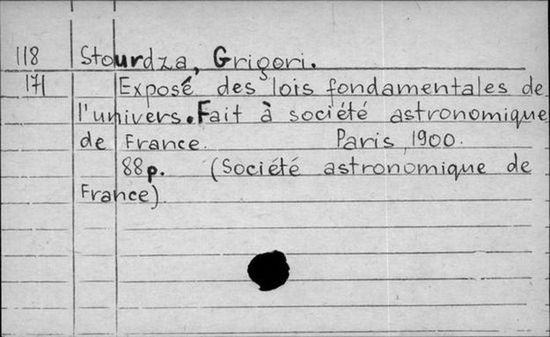 118 Stourdza, Grigori.
171 Exposé des lois fondamentales de
l'univers. Fait à société astronomique
de France. Paris, 1900.
88p. (Société astronomique de
France)